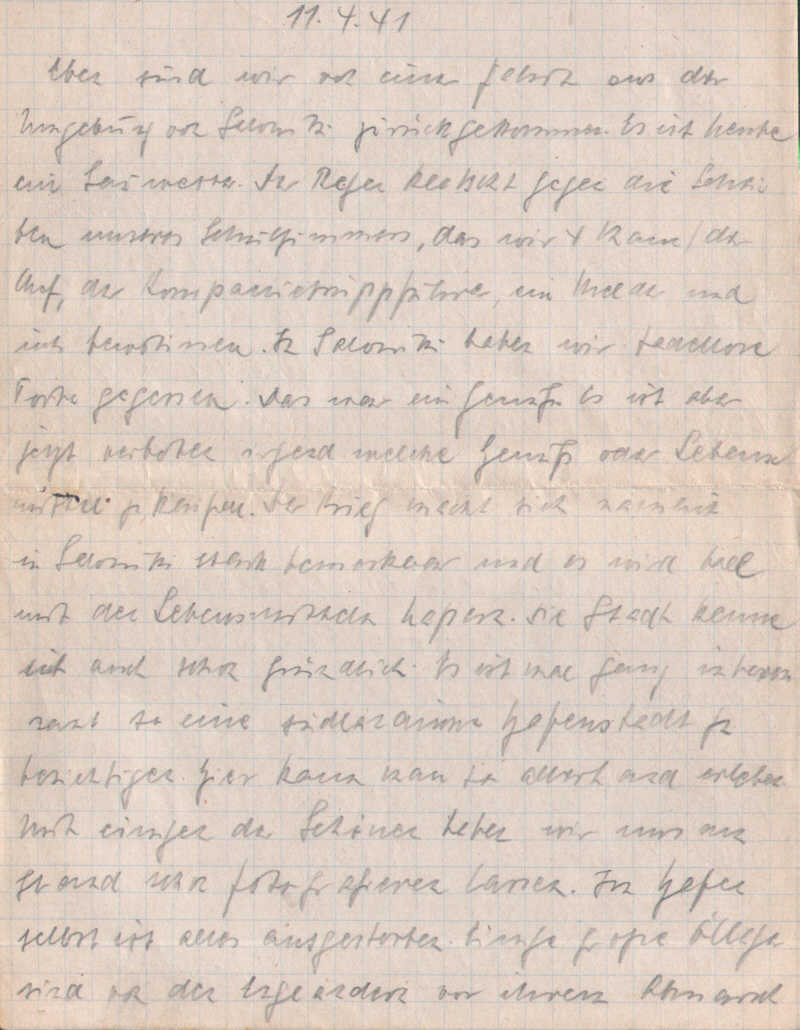 11.4.41
Eben sind wir von einer Fahrt aus der
Umgebung von Saloniki zurückgekommen. Es ist heute
ein Sauwetter. Der Regen klatscht gegen die Schei
ben unseres Schulzimmers, das wir 4 Mann, der
Chef, der Kompanietruppführer, ein Melder und
ich bewohnen. In Saloniki haben wir tadellose
Torte gegessen. Das war ein Genuß. Es ist aber
jetzt verboten irgend welche Genuß oder Lebens
mittel zu kaufen. Der Krieg macht sich
in Saloniki stark bemerkbar und es wird bald
mit den Lebensmitteln hapern. Die Stadt kenne
ich auch schon gründlich. Es ist mal ganz interes
sant so eine südländische Hafenstadt zu
besichtigen. Hier kann man so allerhand erleben.
Mit einigen der Schönen haben wir uns am
Strand schon fotografieren lassen. Im Hafen
selbst ist alles ausgestorben. Einige große Öllager
sind von den Engländern vor ihrem Abmarsch